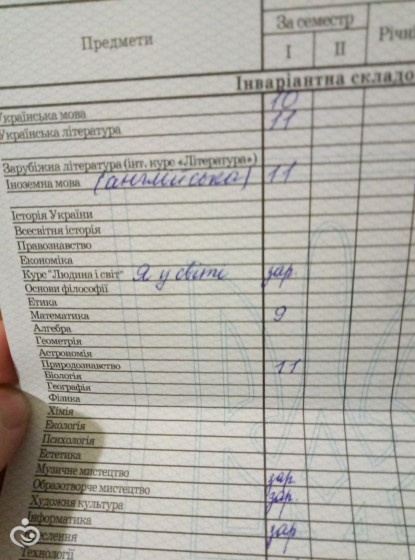 Предмети
За семестр
Річні
I
II
Інваріантна складо
Українська мова 10
Українська література 11
Зарубіжна література (інт. курс «Література»)
Іноземна мова (англійська) 11
Історія України
Всесвітня історія
Правознавство
Економіка
Курс "Людина і світ" Я у світі зар.
Основи філософії
Етика
Математика 9
Алгебра
Геометрія
Астрономія
Природознавство 11
Біологія
Географія
Фізика
Хімія
Екологія
Психологія
Естетика
Музичне мистецтво зар.
Образотворче мистецтво зар.
Художня культура
Інформатика
зар.
Технології